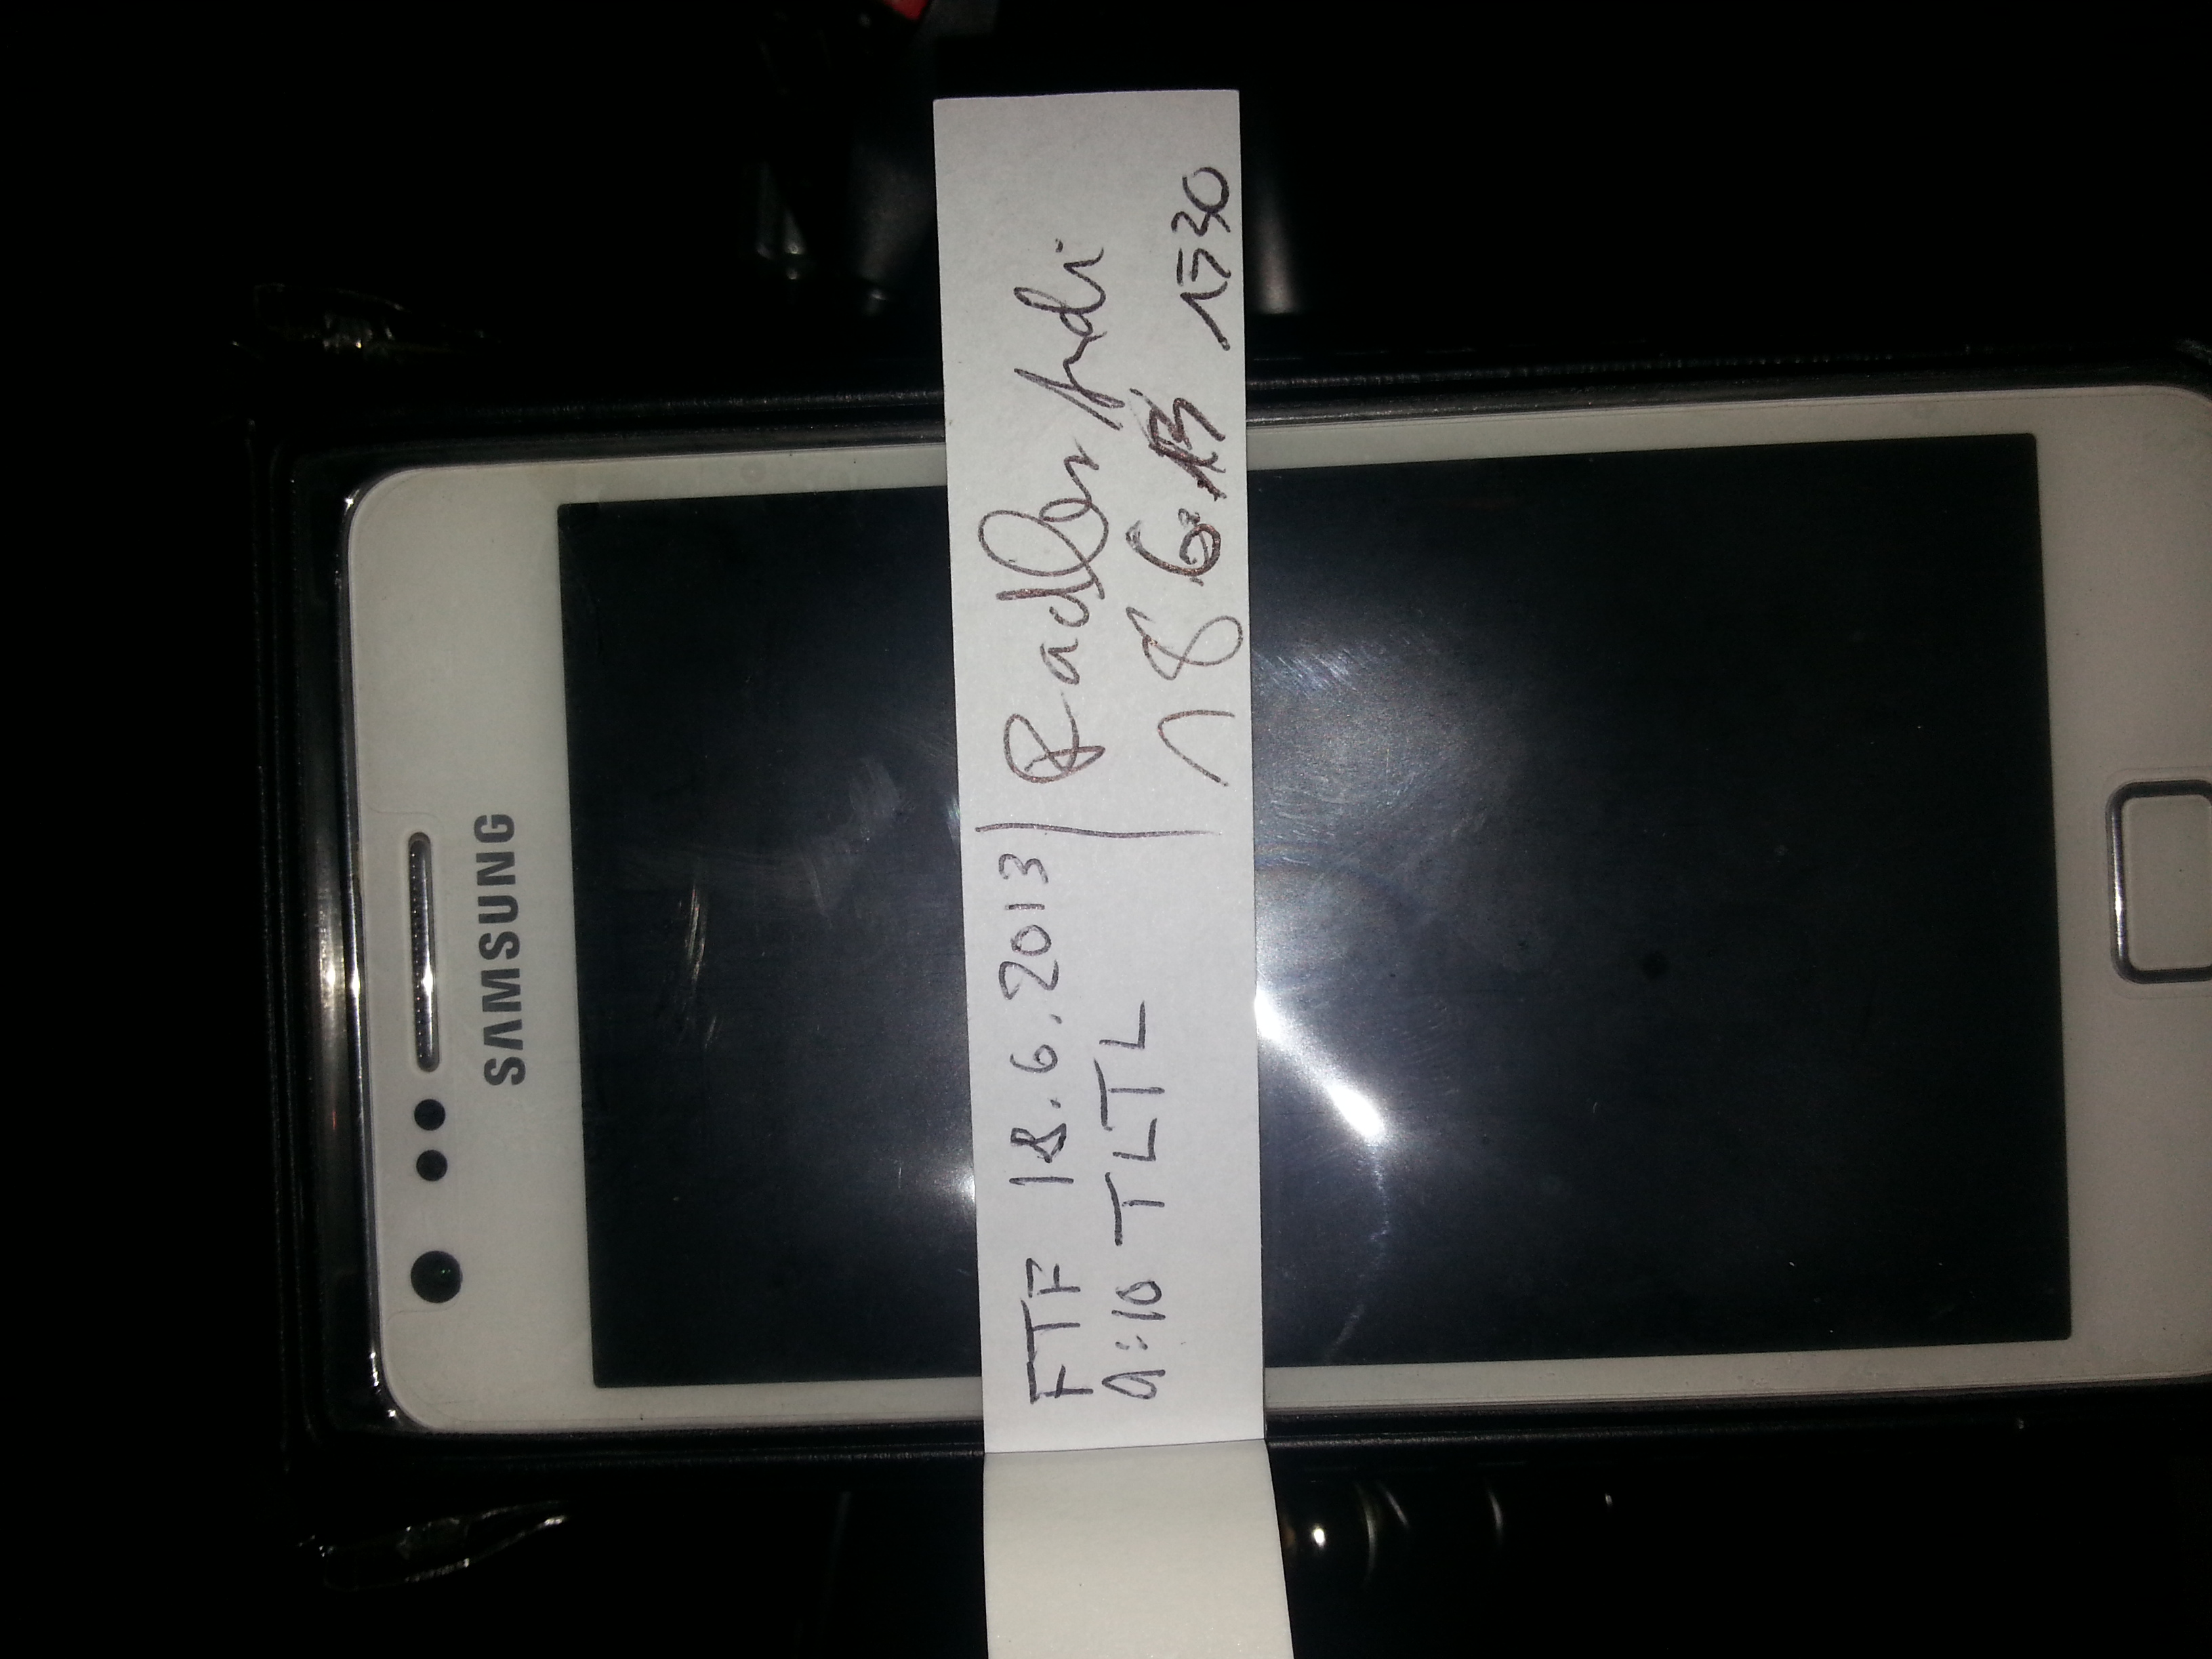 SAMSUNG
FTF 18.6.2013
9:10 TLTL
Radler
18 6.13 1530